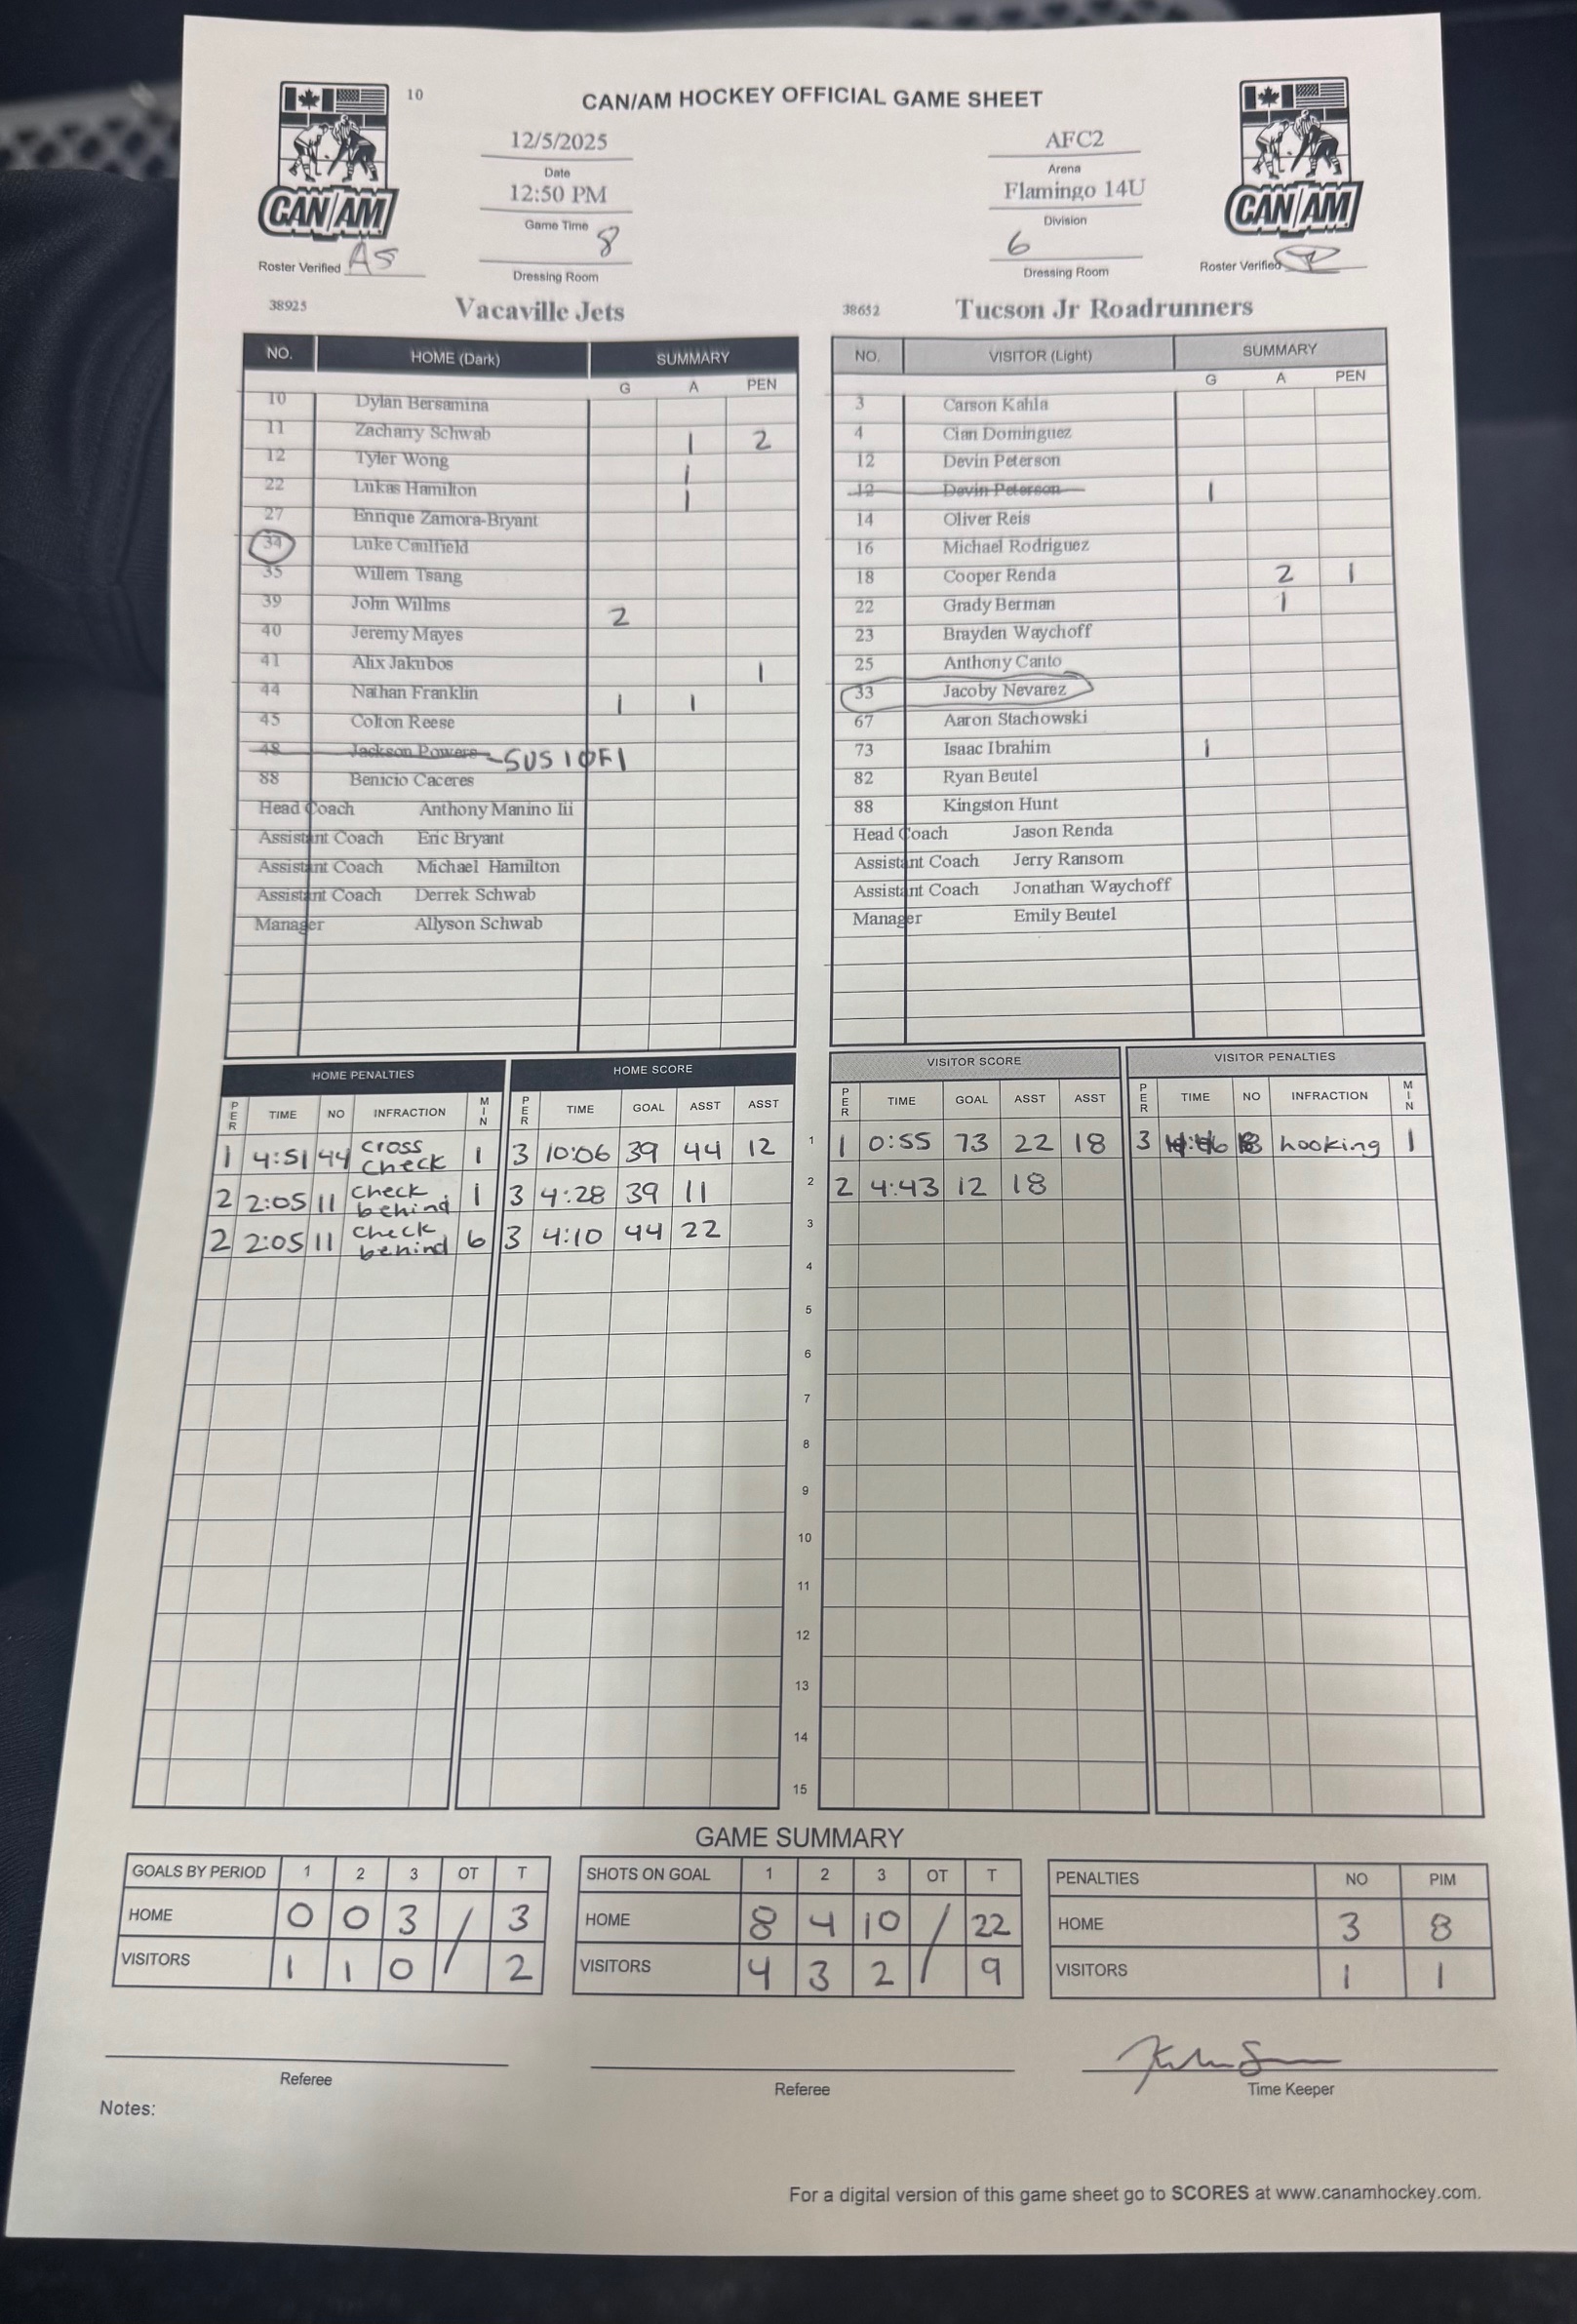 10
CAN/AM HOCKEY OFFICIAL GAME SHEET
CAN/AM
CAN/AM
12/5/2025
Date
12:50 PM
Game Time
8
Dressing Room
AFC2
Arena
Flamingo 14U
Division
6
Dressing Room
Roster Verified AS
Roster Verified
38925 Vacaville Jets
38652 Tucson Jr Roadrunners
NO. HOME (Dark) SUMMARY
G A PEN
10 Dylan Bersamina
11 Zachary Schwab 1 2
12 Tyler Wong 1
22 Lukas Hamilton 1
27 Enrique Zamora-Bryant
34 Luke Caulfield
35 Willem Tsang
39 John Willms 2
40 Jeremy Mayes
41 Alix Jakubos 1
44 Nathan Franklin 1 1
45 Colton Reese
48 Jackson Powers - SUS 1 OF 1
88 Benicio Caceres
Head Coach Anthony Manino Iii
Assistant Coach Eric Bryant
Assistant Coach Michael Hamilton
Assistant Coach Derrek Schwab
Manager Allyson Schwab
NO. VISITOR (Light) SUMMARY
G A PEN
3 Carson Kahla
4 Cian Dominguez
12 Devin Peterson
12 Devin Peterson 1
14 Oliver Reis
16 Michael Rodriguez
18 Cooper Renda 2 1
22 Grady Berman 1
23 Brayden Waychoff
25 Anthony Canto
33 Jacoby Nevarez
67 Aaron Stachowski
73 Isaac Ibrahim 1
82 Ryan Beutel
88 Kingston Hunt
Head Coach Jason Renda
Assistant Coach Jerry Ransom
Assistant Coach Jonathan Waychoff
Manager Emily Beutel
HOME PENALTIES
PER TIME NO INFRACTION MIN
1 4:51 44 cross check 1
2 2:05 11 check behind 1
2 2:05 11 check behind 6
HOME SCORE
PER TIME GOAL ASST ASST
3 10:06 39 44 12
3 4:28 39 11
3 4:10 44 22
1
2
3
4
5
6
7
8
9
10
11
12
13
14
15
VISITOR SCORE
PER TIME GOAL ASST ASST
1 0:55 73 22 18
2 4:43 12 18
VISITOR PENALTIES
PER TIME NO INFRACTION MIN
3 hooking 1
GAME SUMMARY
GOALS BY PERIOD 1 2 3 OT T
HOME 0 0 3 / 3
VISITORS 1 1 0 2
SHOTS ON GOAL 1 2 3 OT T
HOME 8 4 10 / 22
VISITORS 4 3 2 9
PENALTIES NO PIM
HOME 3 8
VISITORS 1 1
Referee
Referee
Time Keeper
Notes:
For a digital version of this game sheet go to SCORES at www.canamhockey.com.